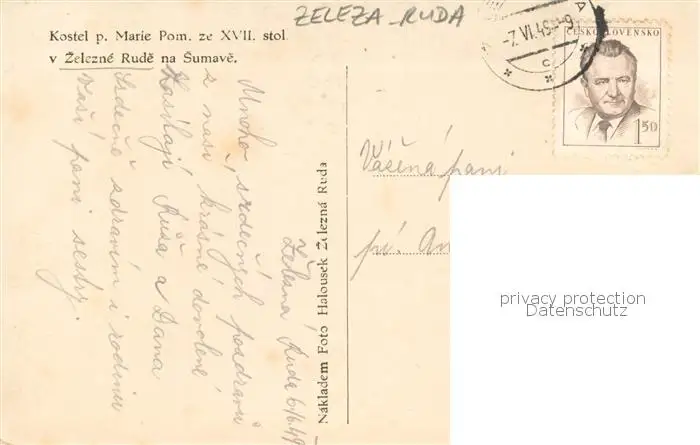 ZELEZA RUDA
Kostel p. Marie Pom. ze XVII. stol.
v Železné Rudě na Šumavě.
-7.VI.49-
C
ČESKOSLOVENSKO
1.50
Železná Ruda 6/6.49
Mnoho srdečných pozdravů
z naší krásné dovolené
zasílají Růža a Dana
Srdečně zdravím i rodinu
Vaší paní sestry.
Nákladem Foto Halousek Železná Ruda
Vážená paní
pí. An
privacy protection
Datenschutz